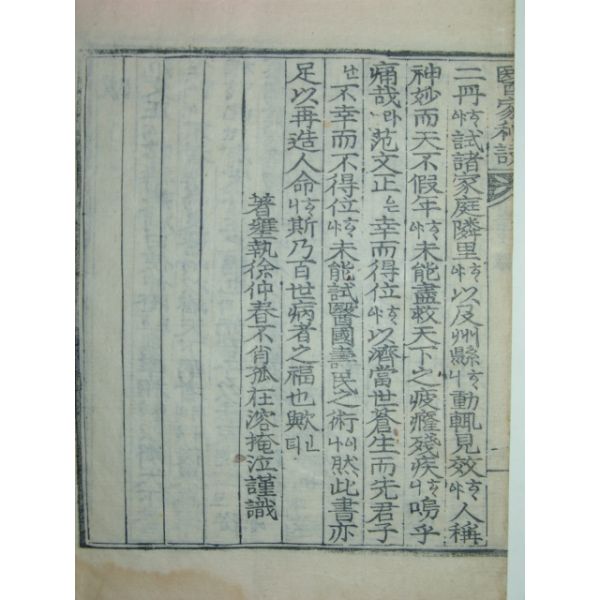 醫家秘訣
二冊ᄒᆞ야試諸家庭隣里ᄒᆞ야以及州縣ᄒᆞ니動輒見效ᄒᆞ야人稱
神妙而天不假年ᄒᆞ야未能盡救天下之疲癃殘疾ᄒᆞ니嗚乎
痛哉라范文正은幸而得位ᄒᆞ야以濟當世蒼生而先君子
난不幸而不得位ᄒᆞ야未能試醫國壽民之術이나然此書亦
足以再造人命ᄒᆞ니斯乃百世病者之福也歟인뎌
著雍執徐仲春不肖孤在溶掩泣謹識